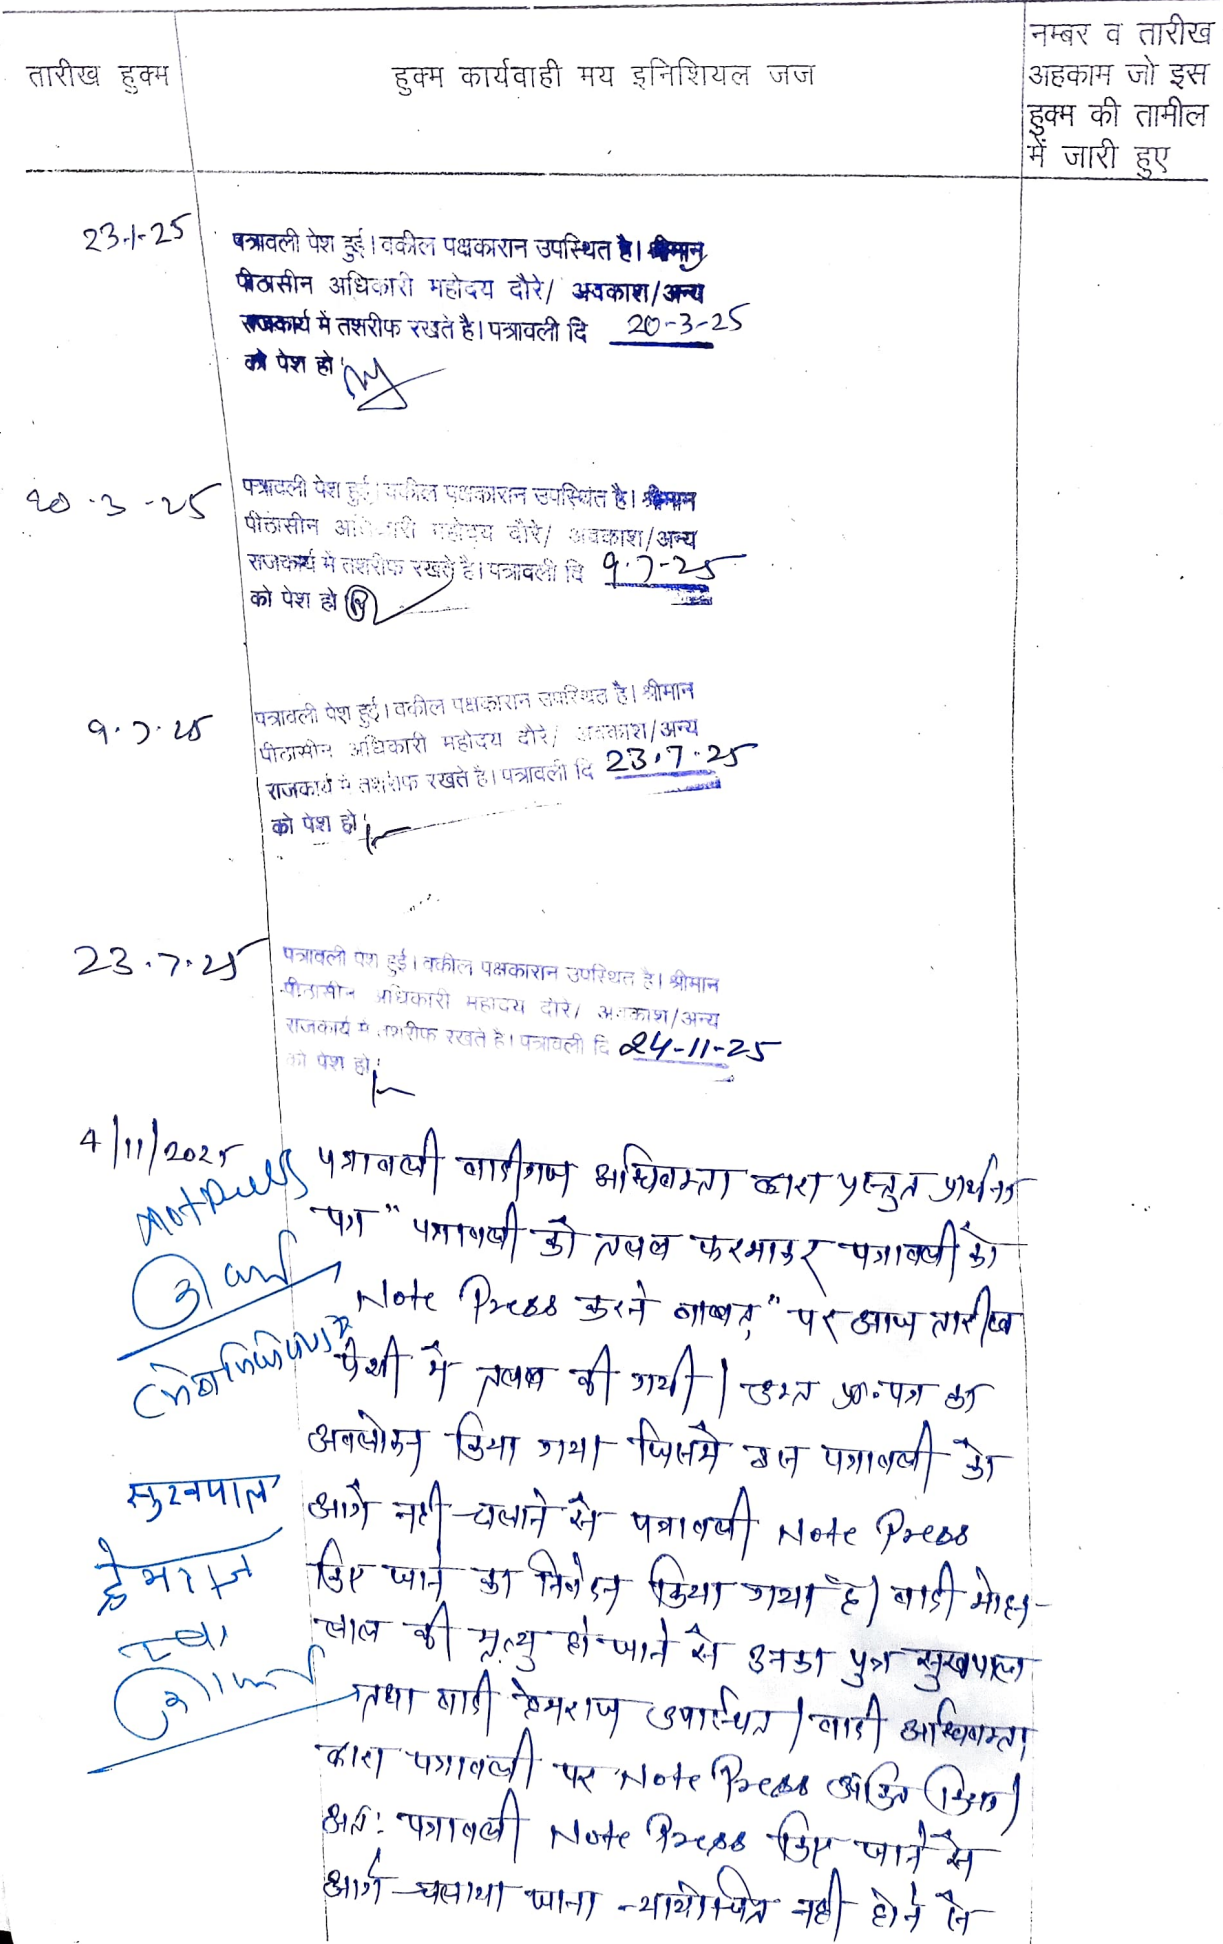 तारीख हुक्म
हुक्म कार्यवाही मय इनिशियल जज
नम्बर व तारीख
अहकाम जो इस
हुक्म की तामील
में जारी हुए
23-1-25
पत्रावली पेश हुई। वकील पक्षकारान उपस्थित है। श्रीमान
पीठासीन अधिकारी महोदय दौरे/ अवकाश/अन्य
राजकार्य में तशरीफ रखते है। पत्रावली दि 20-3-25
को पेश हो
20-3-25
पत्रावली पेश हुई। वकील पक्षकारान उपस्थित है। श्रीमान
पीठासीन अधिकारी महोदय दौरे/ अवकाश/अन्य
राजकार्य में तशरीफ रखते है। पत्रावली दि 9.7-25
को पेश हो
9.7.25
पत्रावली पेश हुई। वकील पक्षकारान उपस्थित है। श्रीमान
पीठासीन अधिकारी महोदय दौरे/ अवकाश/अन्य
राजकार्य में तशरीफ रखते है। पत्रावली दि 23.7.25
को पेश हो
23.7.25
पत्रावली पेश हुई। वकील पक्षकारान उपस्थित है। श्रीमान
पीठासीन अधिकारी महोदय दौरे/ अवकाश/अन्य
राजकार्य में तशरीफ रखते है। पत्रावली दि 24-11-25
को पेश हो
4/11/2025
पत्रावली वादीगण अधिवक्ता द्वारा प्रस्तुत प्रार्थना
पत्र "पत्रावली को तलब फरमाकर पत्रावली को
Note Press करने बाबत्" पर आज तारीख
पेशी में तलब की गयी। उक्त प्रा.पत्र का
अवलोकन किया गया जिसमें इस पत्रावली को
आगे नही चलाने से पत्रावली Note Press
किए जाने का निवेदन किया गया है। वादी मोहन
लाल की मृत्यु हो जाने से उनका पुत्र सुखपाल
तथा वादी हेमराज उपस्थित। वादी अधिवक्ता
द्वारा पत्रावली पर Note Press अंकित किया।
अतः पत्रावली Note Press किए जाने से
आगे चलाया जाना न्यायोचित नही होने से
Not Press
सुखपाल
हेमराज